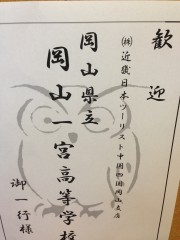 歓迎
㈱近畿日本ツーリスト中国四国岡山支店
岡山県立
岡山一宮高等学校
御一行様